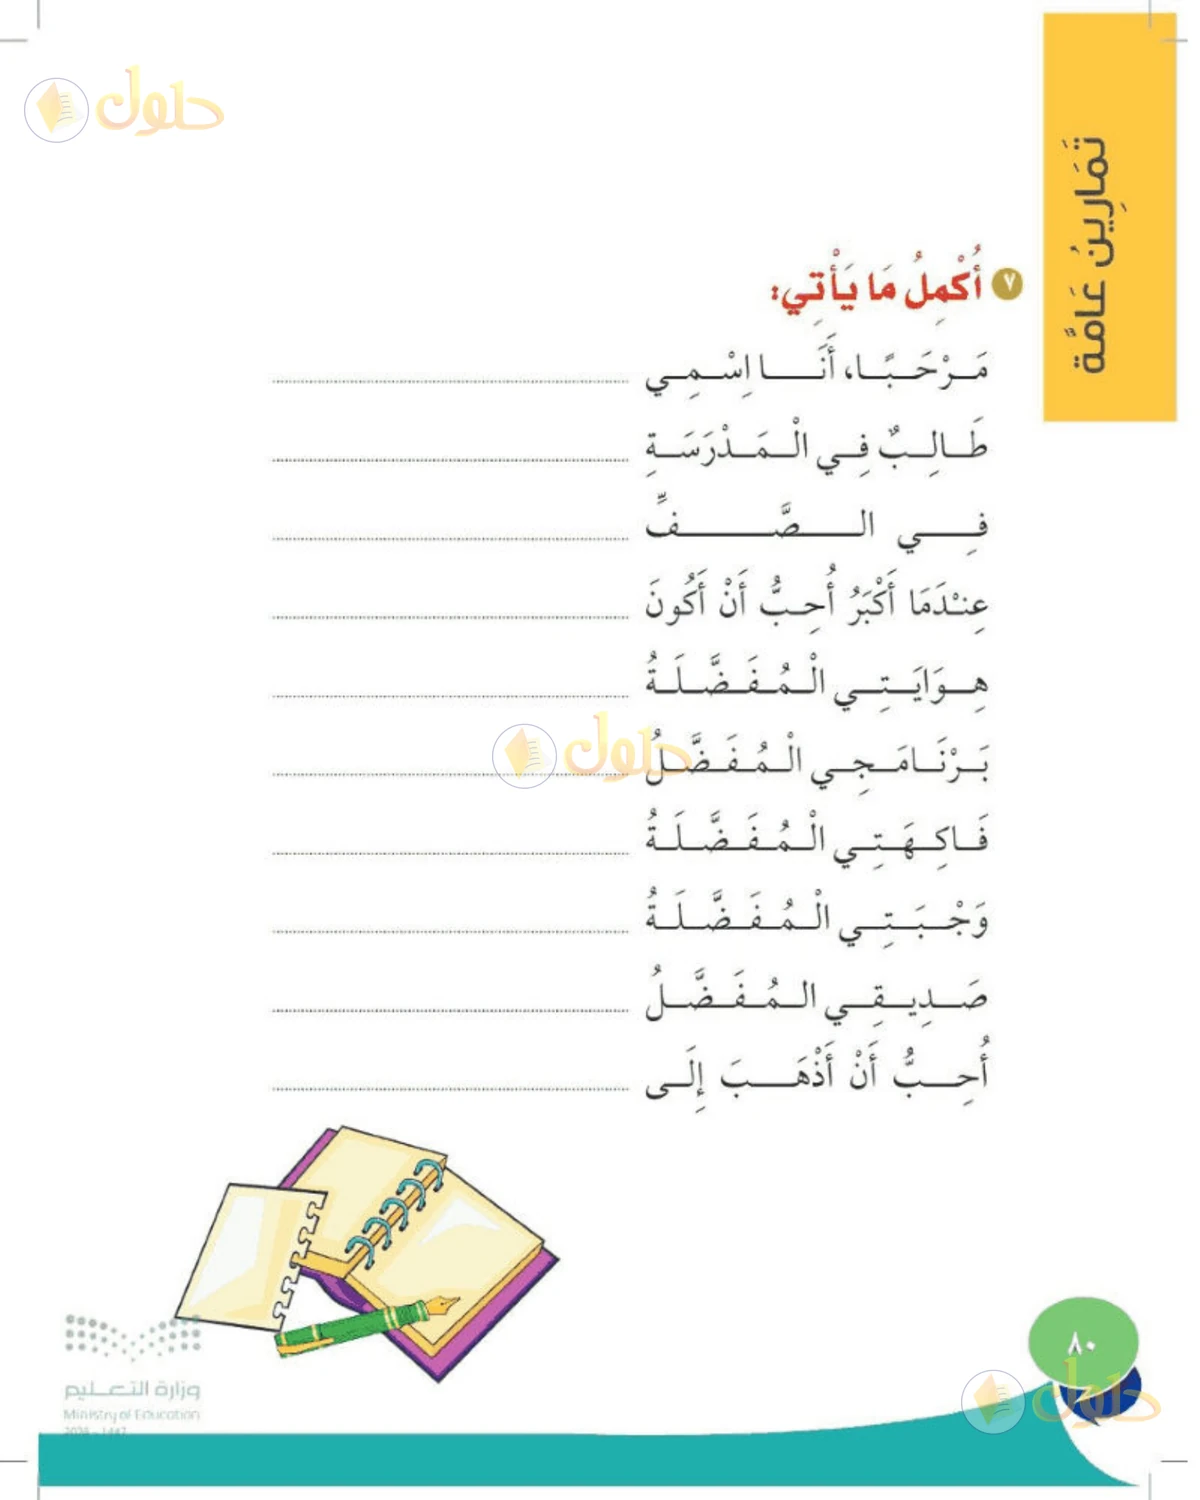 حلول
تَمَارِينُ عَامَّة
٧ أُكْمِلُ مَا يَأْتِي:
مَرْحَبًا، أَنَا اِسْمِي
طَالِبٌ فِي الْمَدْرَسَةِ
فِي الصَّفِّ
عِنْدَمَا أَكْبَرُ أُحِبُّ أَنْ أَكُونَ
هِوَايَتِي الْمُفَضَّلَةُ
بَرْنَامَجِي الْمُفَضَّلُ
حلول
فَاكِهَتِي الْمُفَضَّلَةُ
وَجْبَتِي الْمُفَضَّلَةُ
صَدِيقِي المُفَضَّلُ
أُحِبُّ أَنْ أَذْهَبَ إِلَى
٨٠
وزارة التعليم
Ministry of Education
حلول